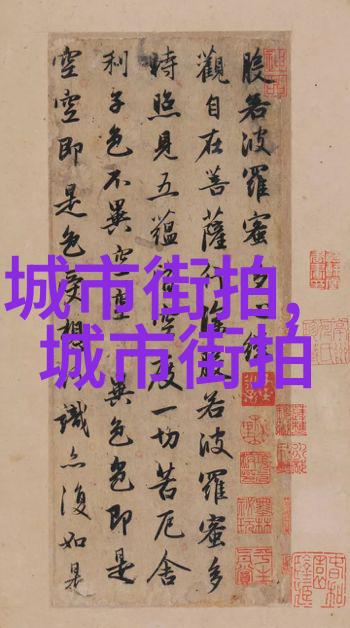 般若波羅蜜多經
觀自在菩薩行深般若波羅蜜多
時照見五蘊皆空度一切苦厄舍
利子色不異空空異色色即是
空空即是色受想識亦復如是
城市街拍,
城市街拍